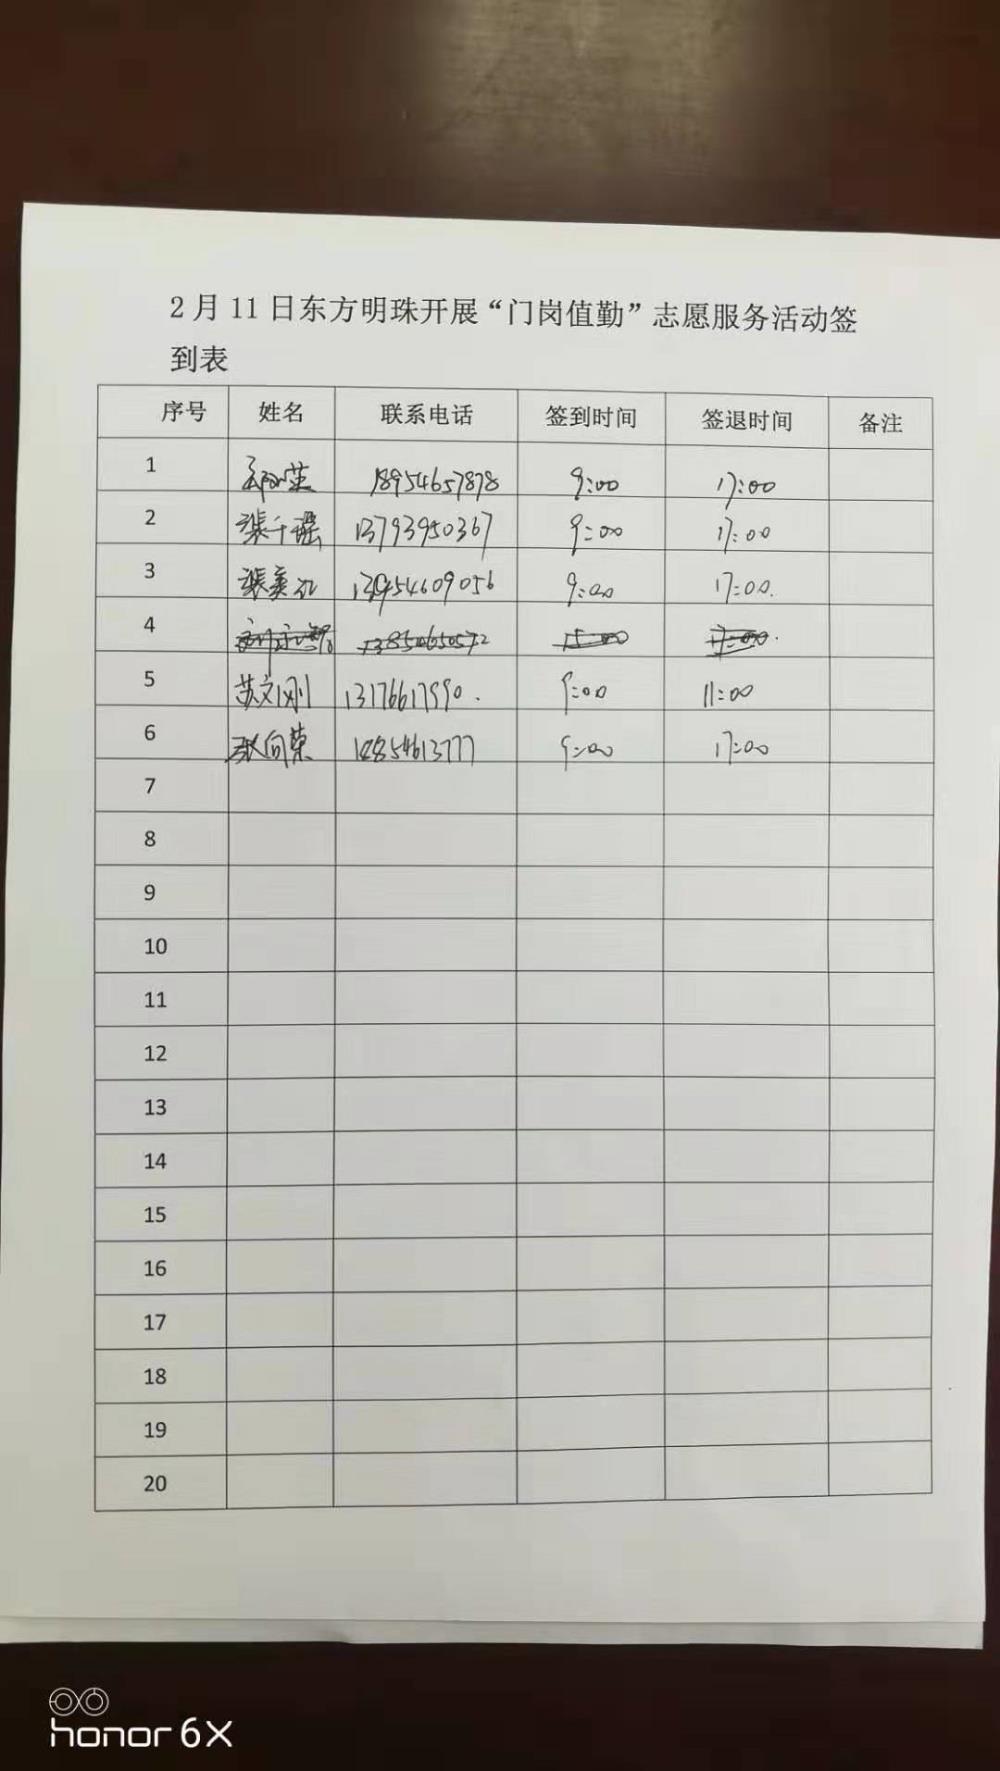 2月11日东方明珠开展“门岗值勤”志愿服务活动签
到表
序号 姓名 联系电话 签到时间 签退时间 备注
1 18954657878 9:00 17:00
2 张千瑶 13793950367 9:00 17:00
3 张美 13954609056 9:00 17:00.
4
5 苏文刚 13176617990. 9:00 11:00
6 张向荣 18854613777 9:00 17:00
7
8
9
10
11
12
13
14
15
16
17
18
19
20
honor 6X